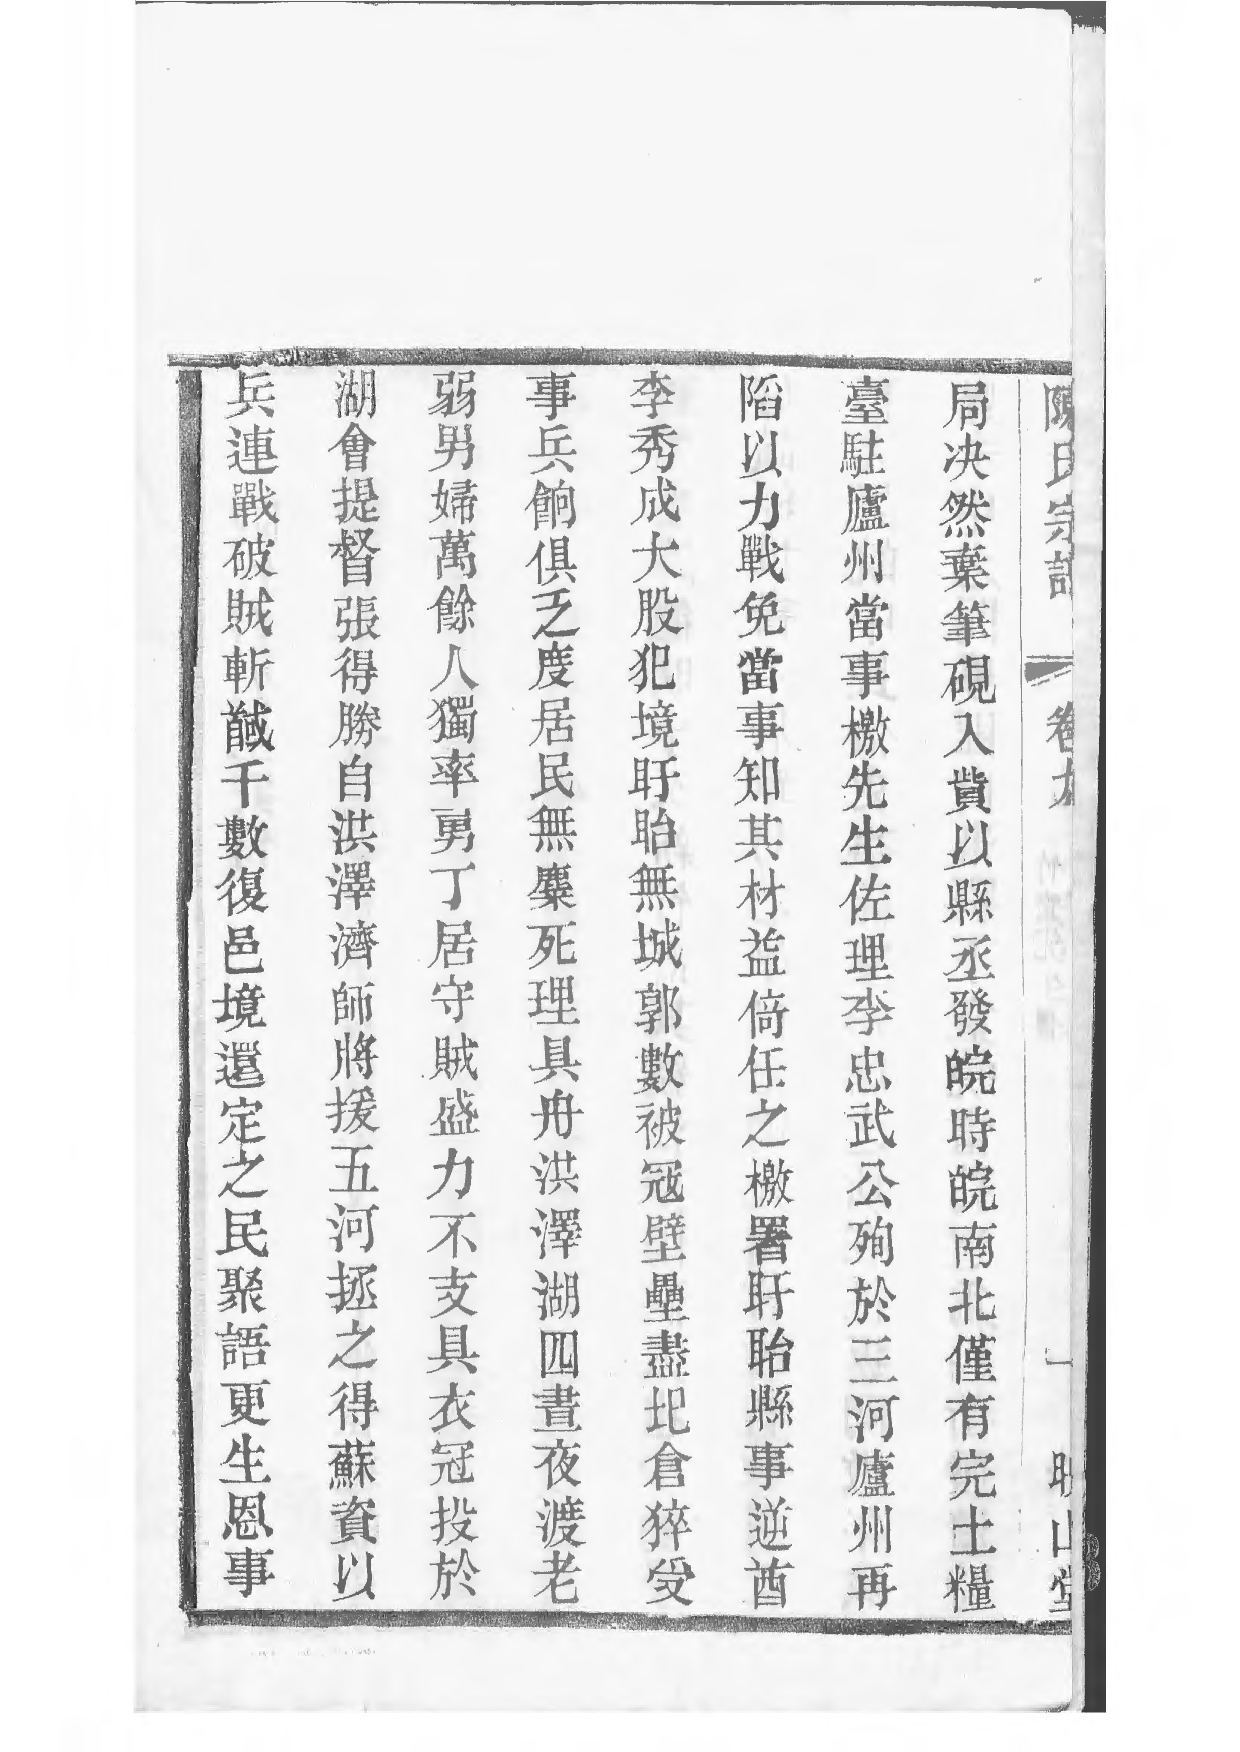 陳氏宗譜 卷九 一 映山堂
局决然棄筆硯入貲以縣丞發皖時皖南北僅有完土糧
臺駐廬州當事檄先生佐理李忠武公殉於三河廬州再
䧟以力戰免當事知其材益倚任之檄署盱眙縣事逆酋
李秀成大股犯境盱眙無城郭數被冦壁壘盡圯倉猝受
事兵餉俱乏度居民無麋死理具舟洪澤湖四晝夜渡老
弱男婦萬餘人獨率勇丁居守賊盛力不支具衣冠投於
湖會提督張得勝自洪澤濟師將援五河拯之得蘇資以
兵連戰破賊斬馘千數復邑境還定之民聚語更生恩事